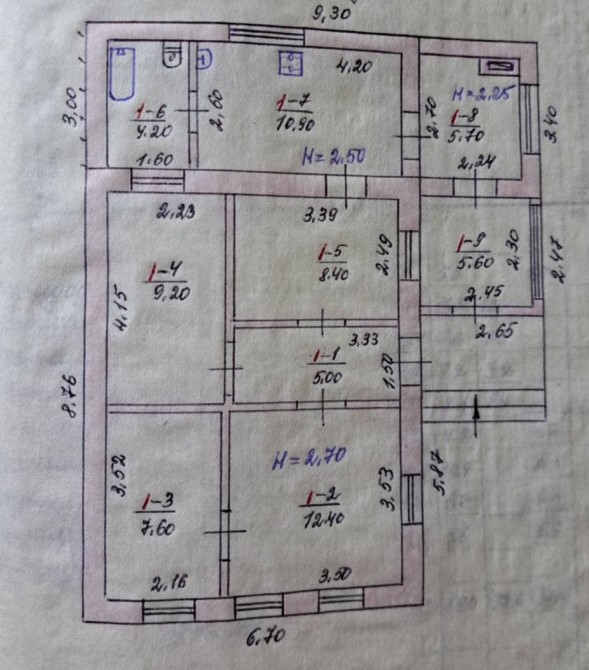 9,30
3,00
1-6
4.20
1.60
2,60
1-7
10.90
4,20
H=2,50
2,70
H=2,25
1-8
5.70
2,24
3,40
2,23
1-4
9,20
4,15
3,39
1-5
8.40
2,49
1-9
5.60
2,30
2,45
2,47
2,65
3,33
1-1
5.00
1,50
8,76
3,52
1-3
7.60
2,16
H=2,70
1-2
12.40
3,53
3,50
5,87
6,70